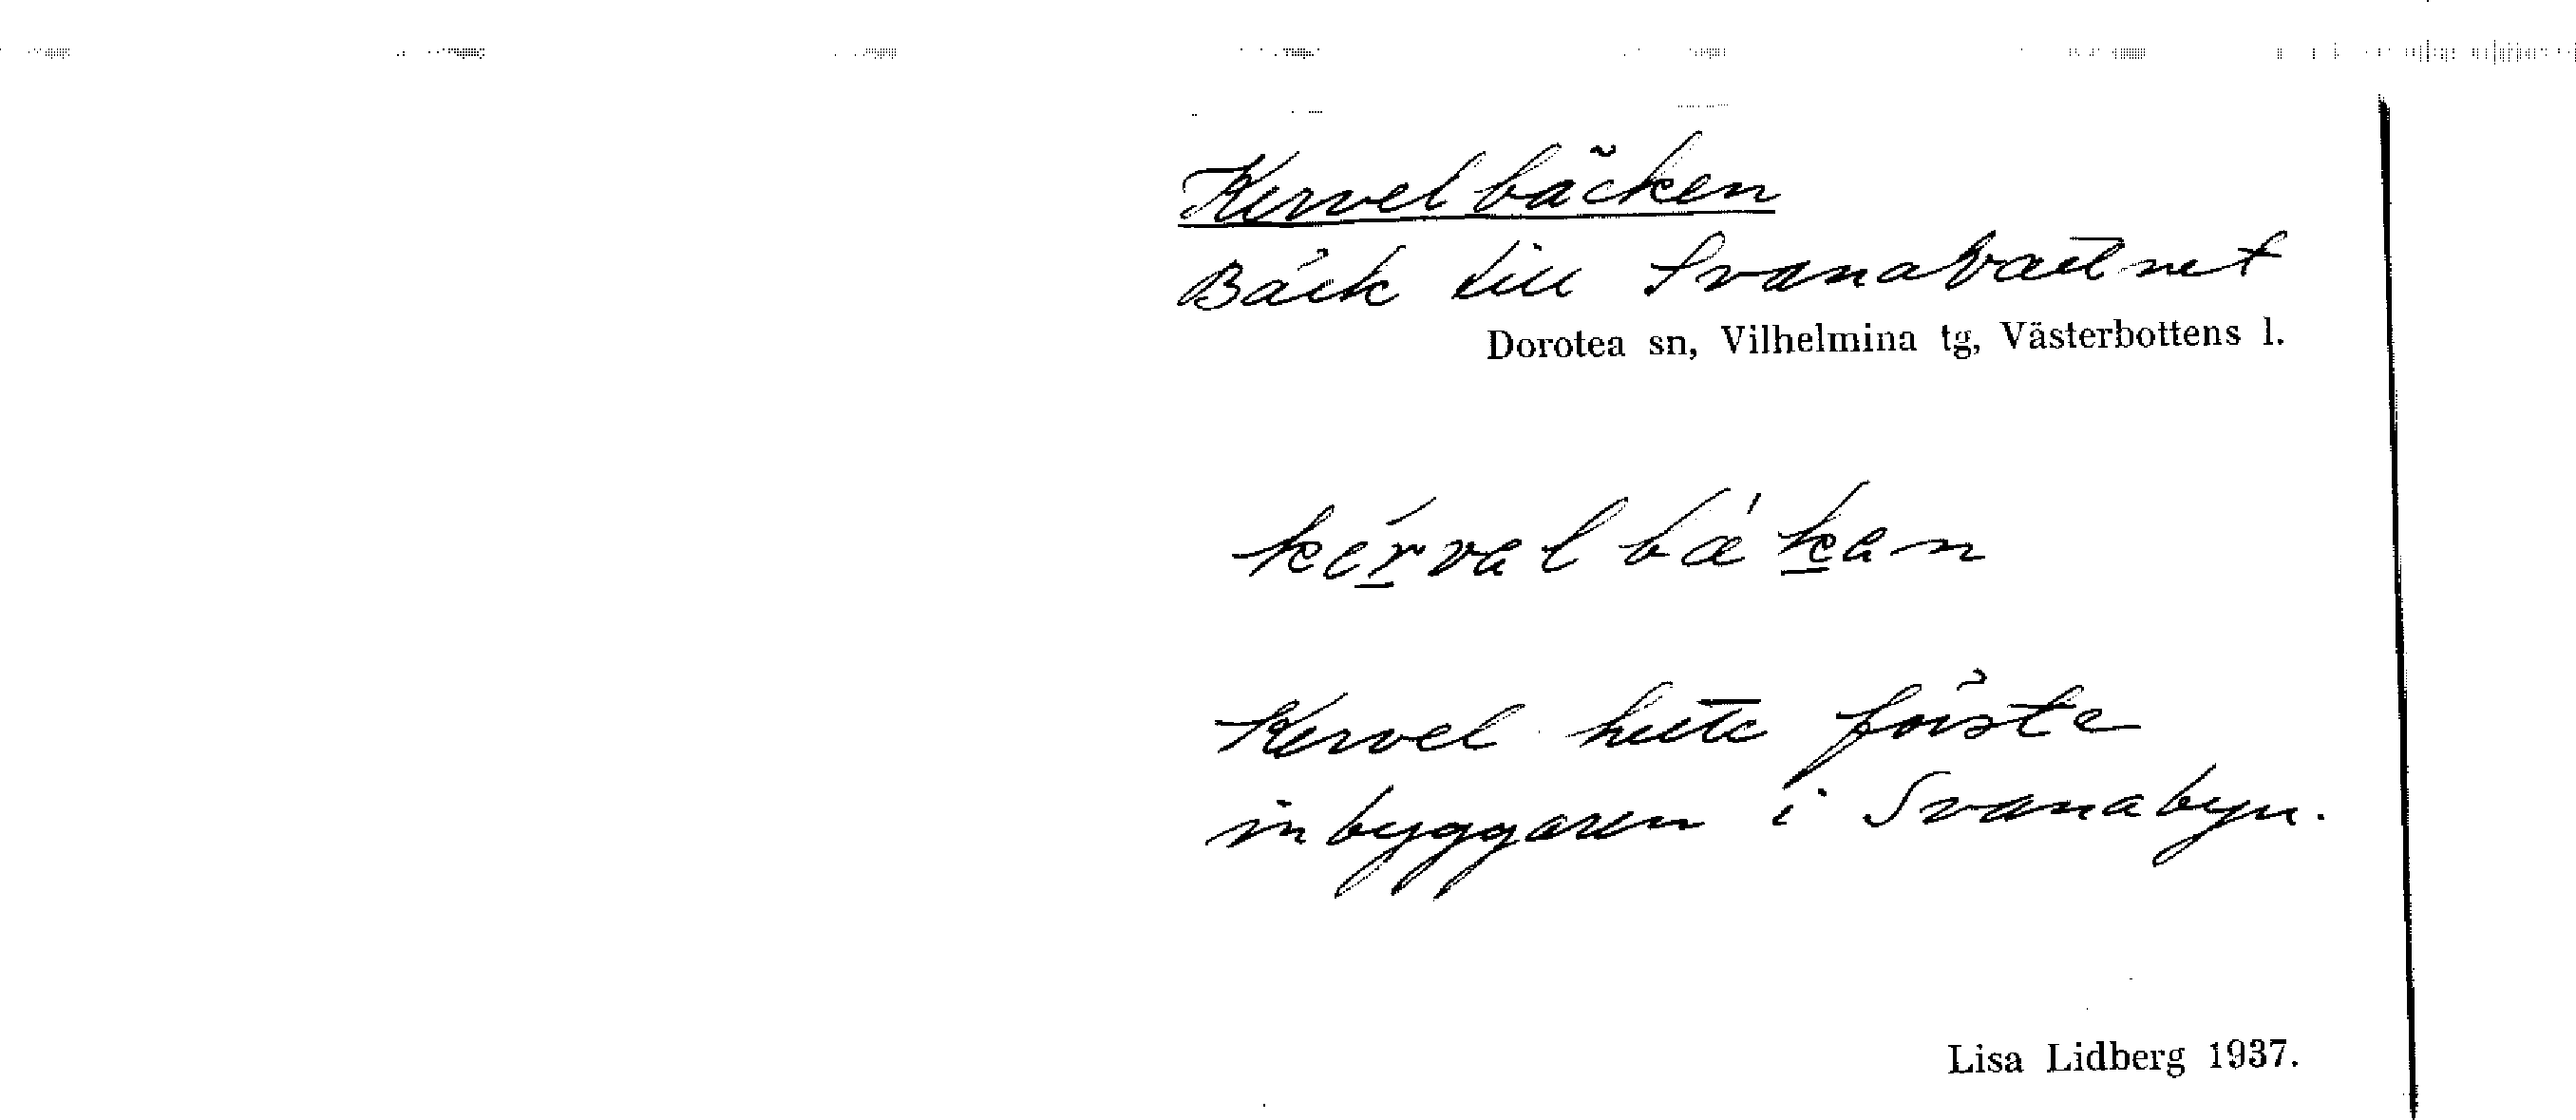 Kervelbäcken
Bäck till Svanavattnet
Dorotea sn, Vilhelmina tg, Västerbottens l.
kérvalbä́kan
Kervel hette förste
inbyggaren i Svanabyn.
Lisa Lidberg 1937.